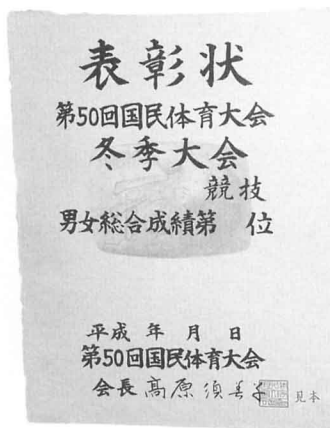 表彰状
第50回国民体育大会
冬季大会
競技
男女総合成績第　位
平成　年　月　日
第50回国民体育大会
会長 高原須美子
見本